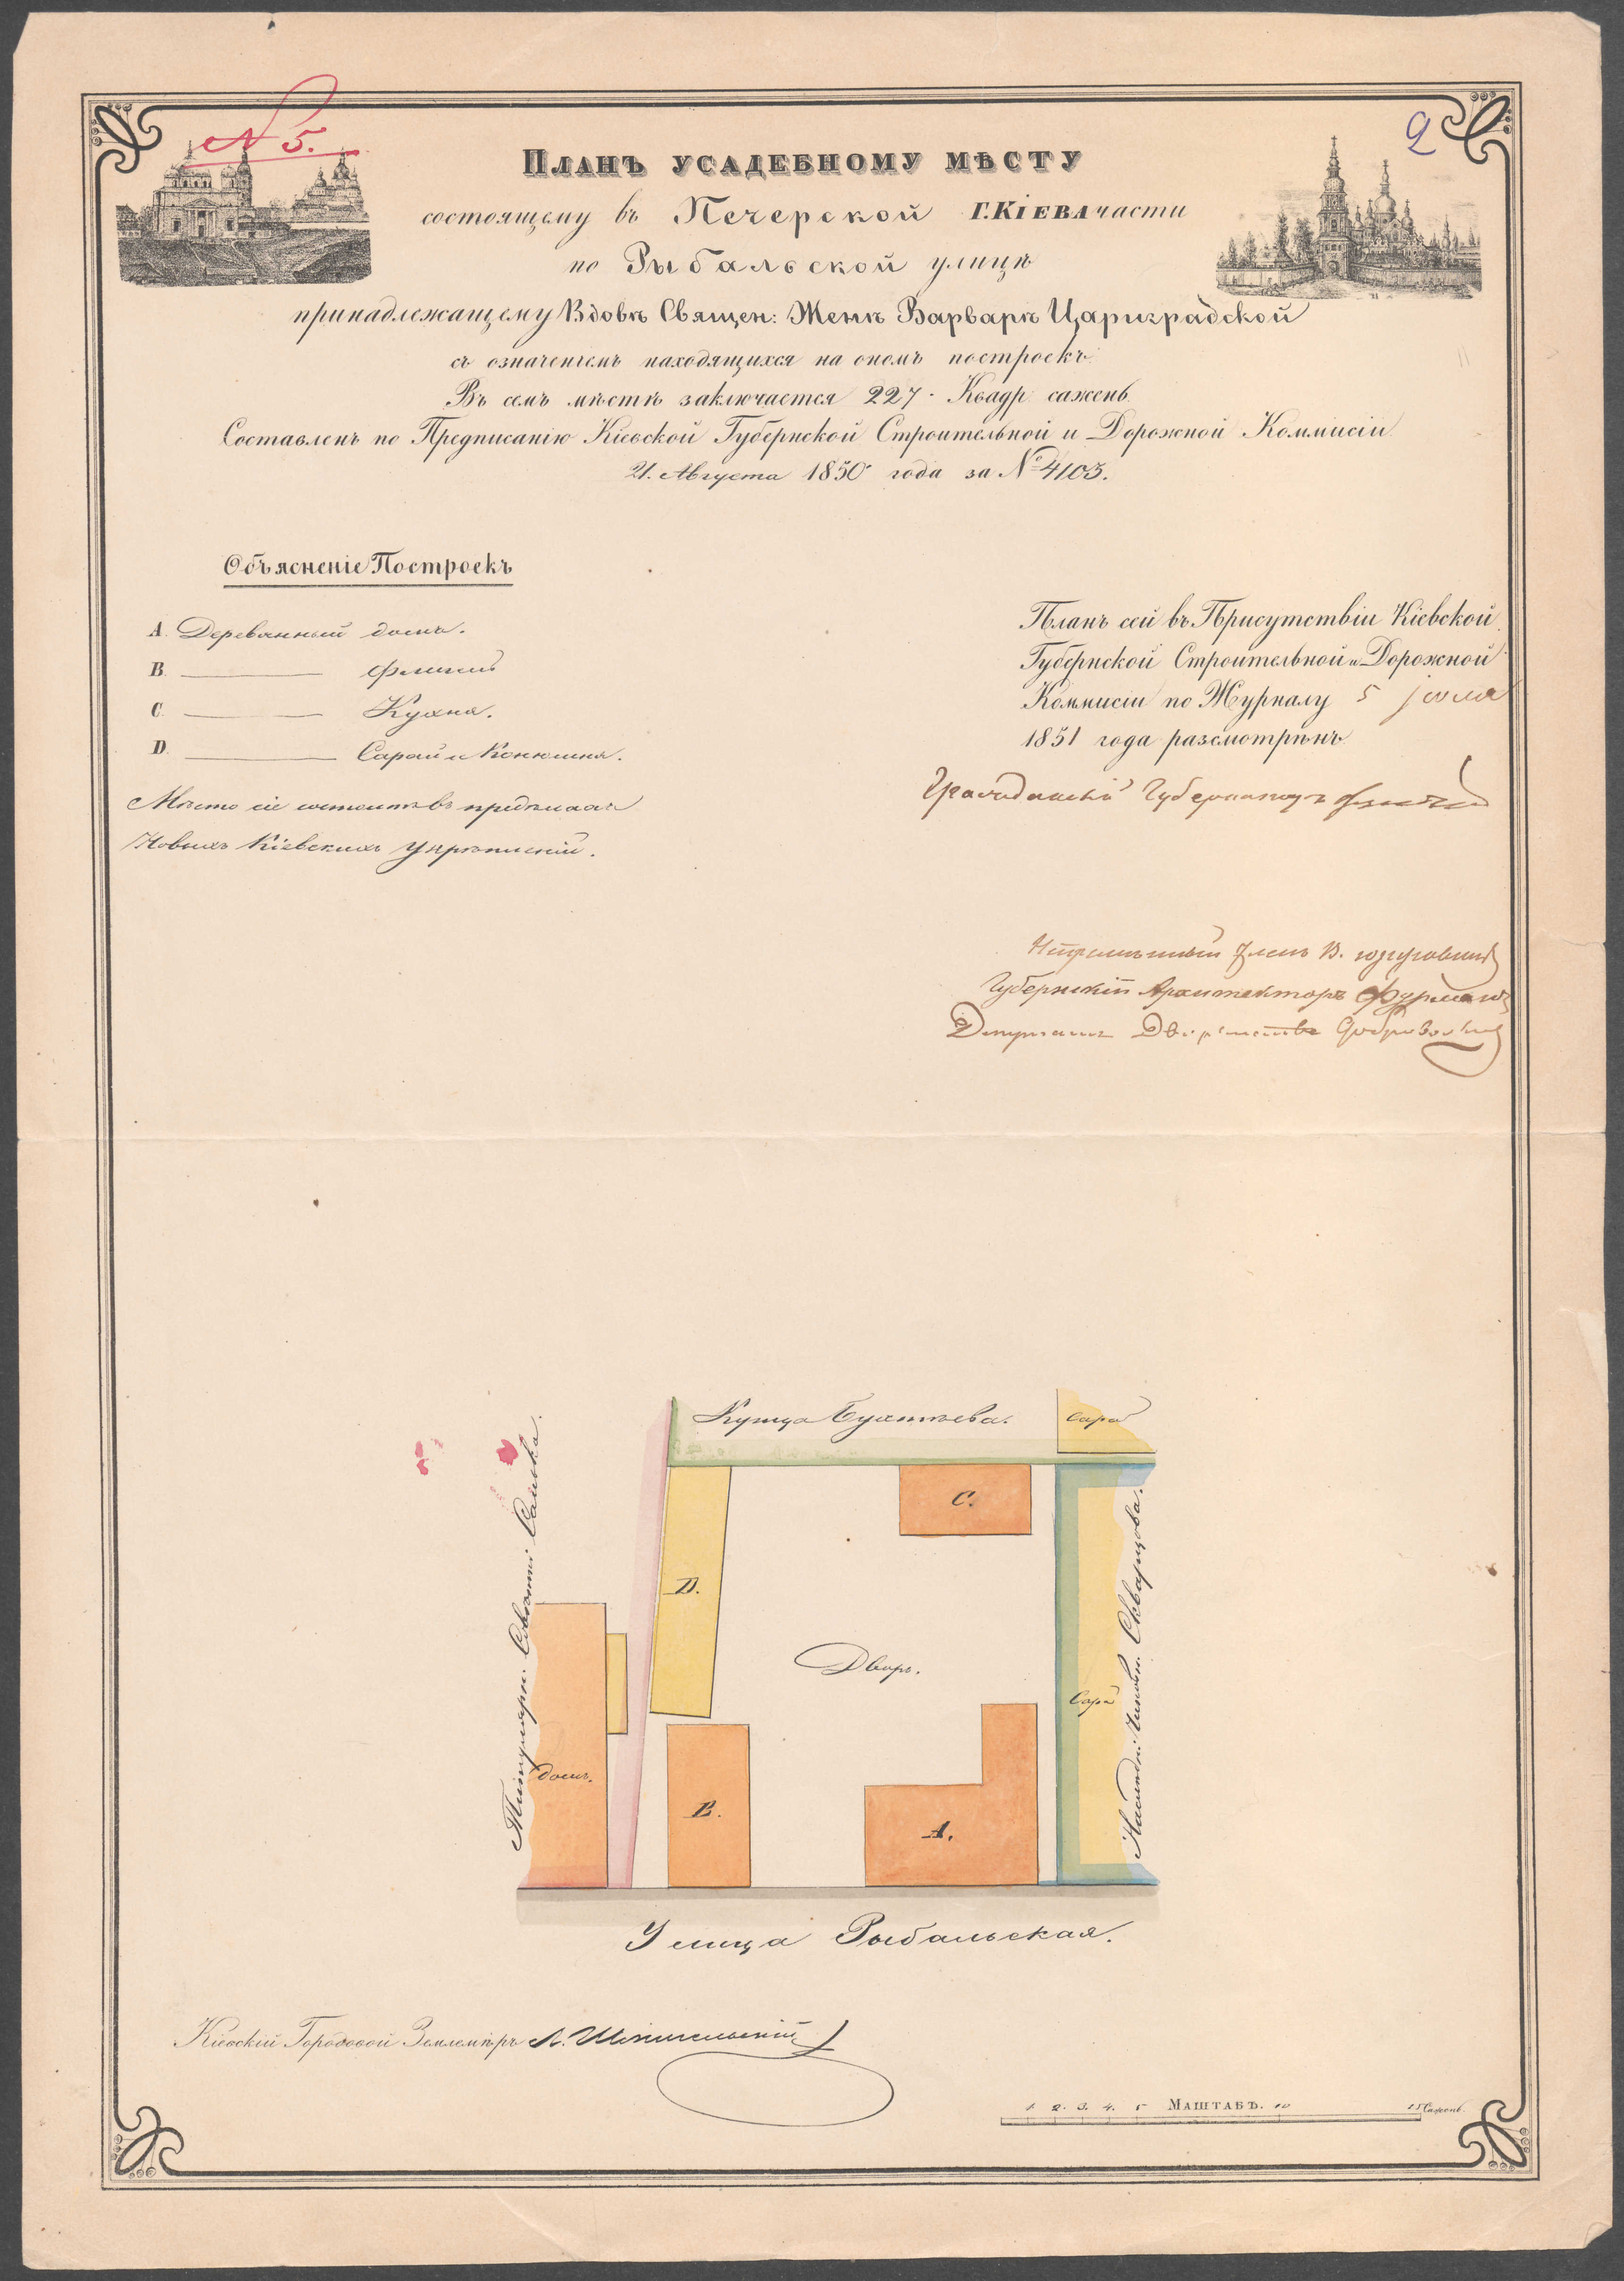 N 5.
2
Планъ усадебному мѣсту
состоящему въ Печерской г. Кіева части
по Рыбальской улицѣ
принадлежащему Вдовѣ Священ: Женѣ Варварѣ Цариградской
съ означеніемъ находящихся на ономъ построекъ
Въ семъ мѣстѣ заключается 227 Квадр: сажень.
Составленъ по Предписанію Кіевской Губернской Строительной и Дорожной Коммисіи
21. Августа 1850 года за № 4103.
Объясненіе Построекъ
A. Деревянный домъ.
B. флигель
C. Кухня.
D. Сарай и Конюшня.
Мѣсто сіе состоитъ въ предѣлахъ
Новыхъ Кіевскихъ Укрѣпленій.
Планъ сей въ Присутствіи Кіевской
Губернской Строительной и Дорожной
Коммисіи по Журналу 5 іюля
1851 года разсмотрѣнъ
Гражданскій Губернаторъ
Непремѣнный Членъ В.
Губернскій Архитекторъ Фурманъ
Депутатъ Дворянства
Купца Бухтѣева.
Сарай
C.
D.
Дворъ.
B.
A.
домъ.
Сарай
Титулярн: Совѣтн:
Наслѣдн: Чиновн: Скварцова.
Улица Рыбальская.
Кіевскій Городовой Землемѣръ Л.
1. 2. 3. 4. 5 Маштабъ. 10 15 Сажень.